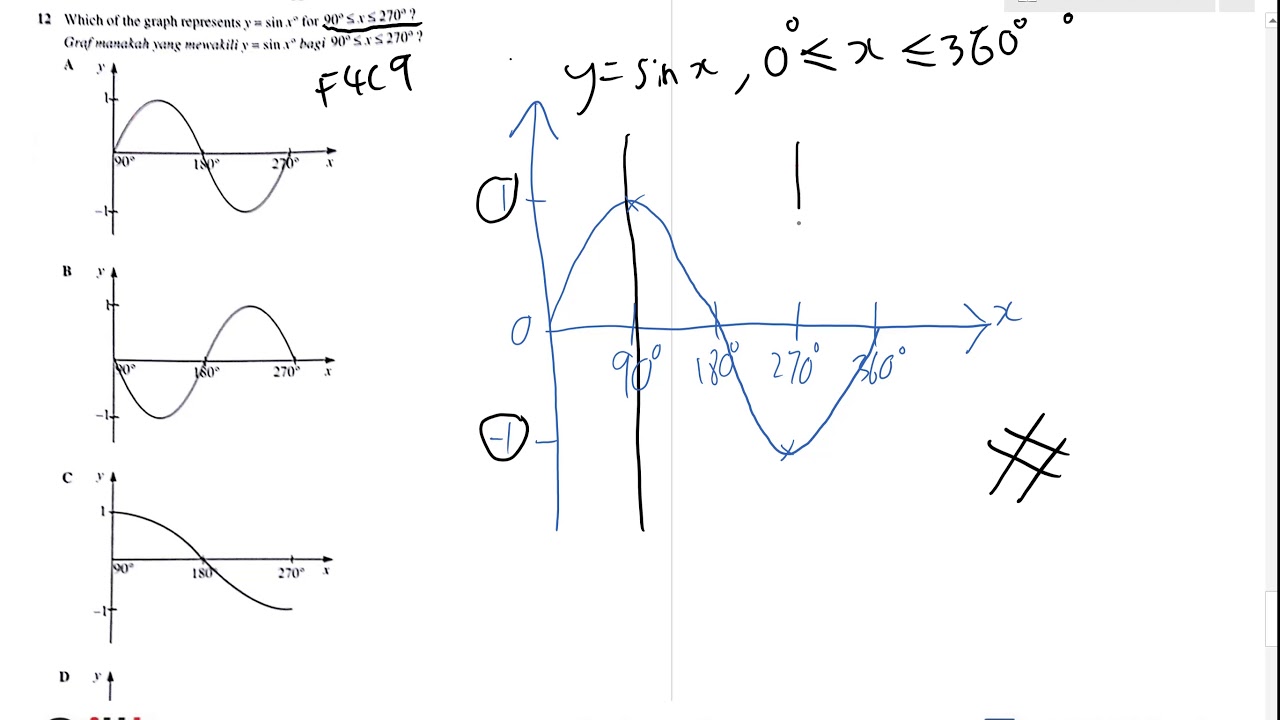 12 Which of the graph represents y = sin x° for 90° ≤ x ≤ 270° ?
Graf manakah yang mewakili y = sin x° bagi 90° ≤ x ≤ 270° ?
F4C9
A
y
1
-1
90°
180°
270°
x
B
y
1
-1
90°
180°
270°
x
C
y
1
-1
90°
180°
270°
x
D
y
y = sin x , 0° ≤ x ≤ 360°
1
0
-1
90°
180°
270°
360°
x